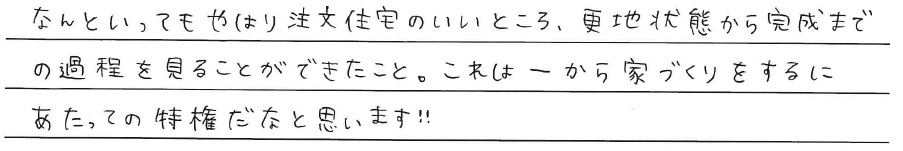 なんといってもやはり注文住宅のいいところ、更地状態から完成まで
の過程を見ることができたこと。これは一から家づくりをするに
あたっての特権だなと思います!!